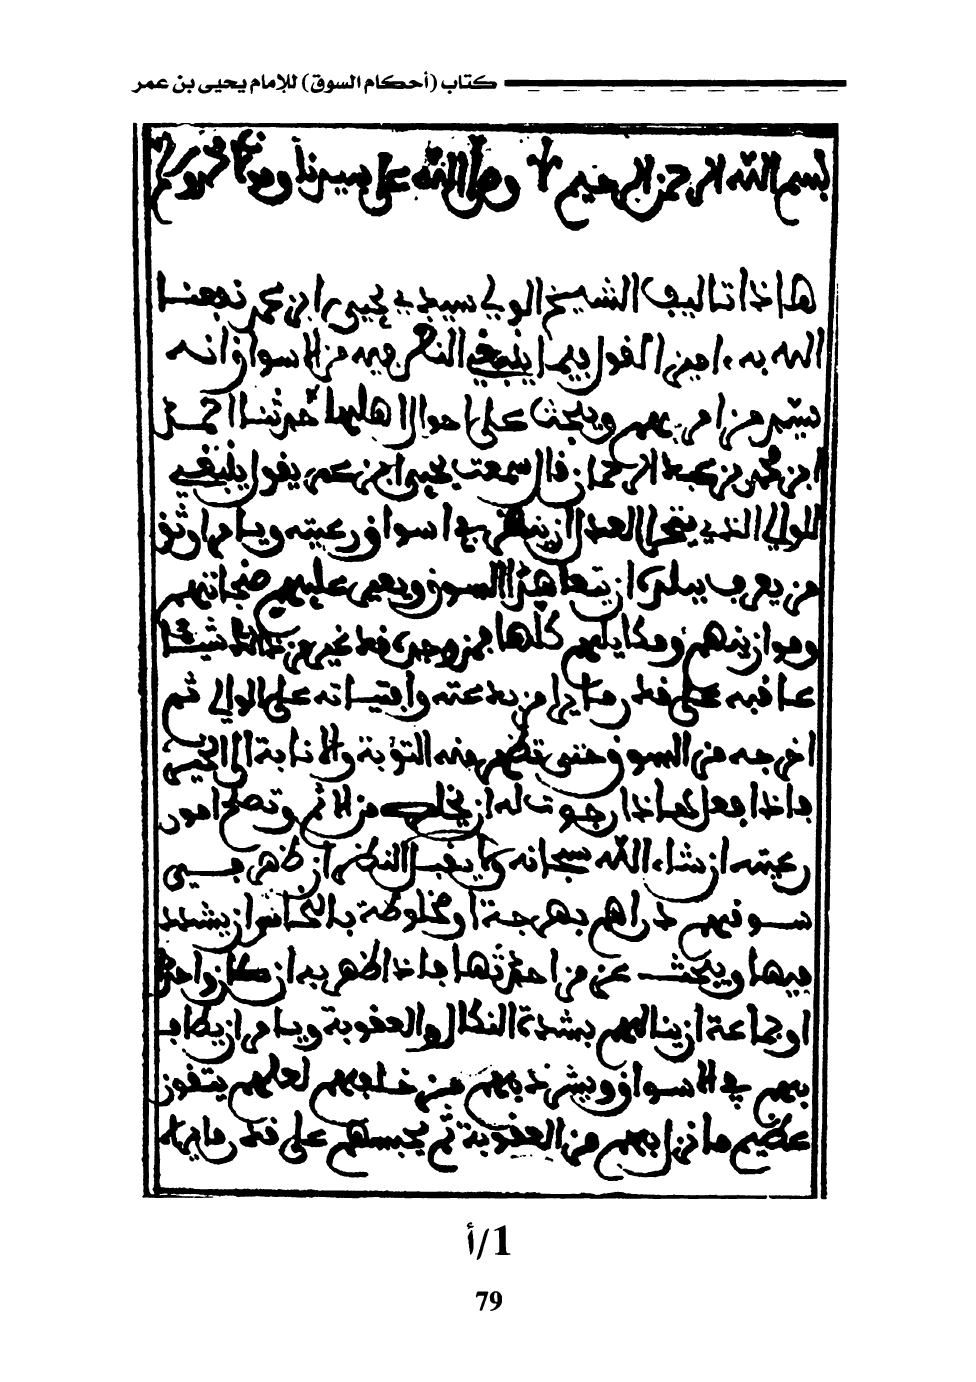 كتاب (أحكام السوق) للإمام يحيى بن عمر
بسم الله الرحمن الرحيم وصلى الله على سيدنا ومولانا محمد
هاذا تاليف الشيخ الولي سيدي يحيى ابن عمر نفعنا
الله به ءامين القول فيما ينبغي النظر فيه من الاسواق انه
من امر بهم ويبحث على احوال اهلها حدثنا احمد
ابن محمد بن عبد الرحمان قال سمعت يحيى ابن عمر يقول ينبغي
للوالي الذي يتحرا العدل ان ينظر في اسواق رعيته ويامر اوثق
من يعرف ببلده ان يتعاهد السوق ويعير عليهم صنجاتهم
وموازينهم ومكايلهم كلها فمن وجده قد غير من ذالك شيئا
عاقبه على قدر ما يرا من بدعته وافتياته على الوالي ثم
اخرجه من السوق حتى تظهر منه التوبة والانابة الى الخير
فاذا فعل هاذا رجوت له ان يخلص من الاثم وتصلح امور
رعيته ان شاء الله سبحانه ولا يغفل النظر ان ظهر في
سوقهم دراهم بهرجة او مخلوطة بالنحاس ان يشدد
فيها ويبحث عن من احدثها فاذا ظهر به ان كان واحدا
او جماعة ان ينالهم بشدة النكال والعقوبة ويامر ان يطاف
بهم في الاسواق ويشرد بهم من خلفهم لعلهم يتقون
عظيم ما نزل بهم من العقوبة ثم يحبسهم على قدر ما يراه
1/أ
79